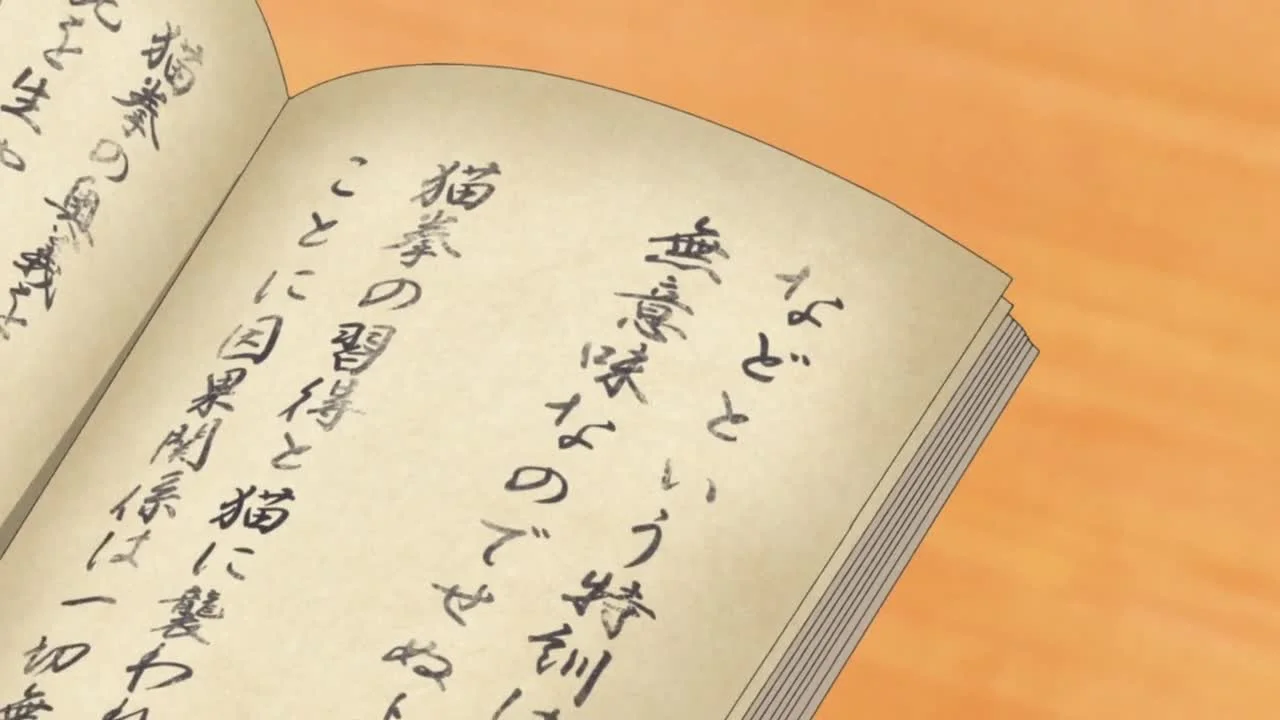 などという特訓は
無意味なのでせぬ
猫拳の習得と猫に襲われ
ことに因果関係は一切無
猫拳の奥義を